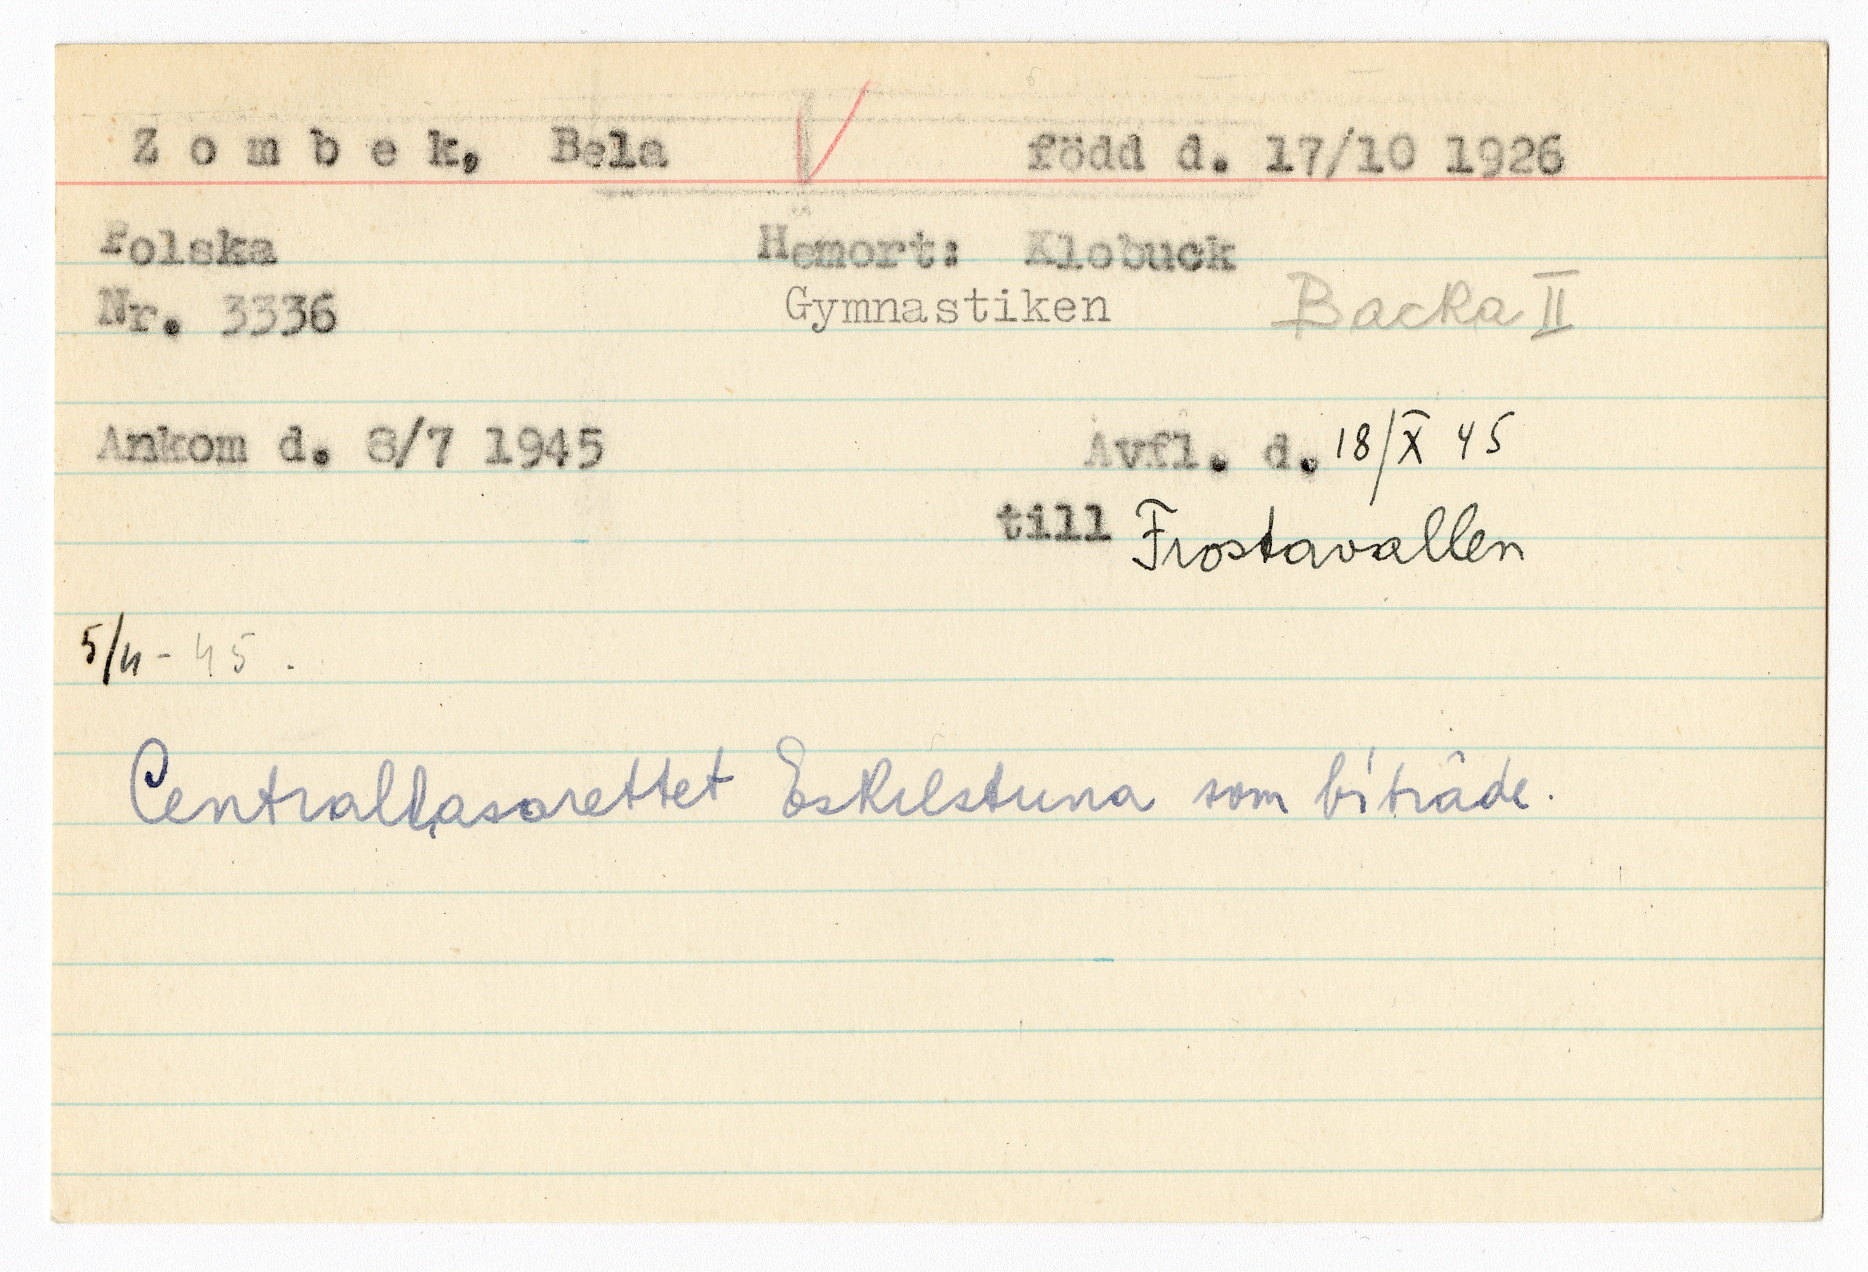 Zombek, Bela född d. 17/10 1926
Polska Hemort: Klobuck
Nr. 3336 Gymnastiken Backa II
Ankom d. 8/7 1945 Avfl. d. 18/X 45
till Frostavallen
5/11-45.
Centrallasarettet Eskilstuna som biträde.